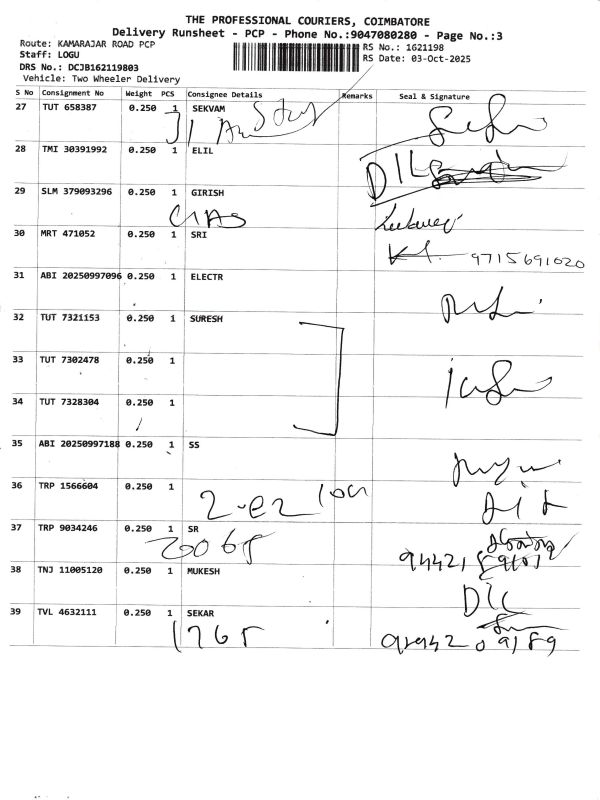 THE PROFESSIONAL COURIERS, COIMBATORE
Delivery Runsheet - PCP - Phone No.:9047080280 - Page No.:3
Route: KAMARAJAR ROAD PCP
Staff: LOGU
DRS No.: DCJB162119803
Vehicle: Two Wheeler Delivery
RS No.: 1621198
RS Date: 03-Oct-2025
S No Consignment No Weight PCS Consignee Details Remarks Seal & Signature
27 TUT 658387 0.250 1 SEKVAM
28 TMI 30391992 0.250 1 ELIL
29 SLM 379093296 0.250 1 GIRISH
30 MRT 471052 0.250 1 SRI
9715691020
31 ABI 20250997096 0.250 1 ELECTR
32 TUT 7321153 0.250 1 SURESH
33 TUT 7302478 0.250 1
34 TUT 7328304 0.250 1
35 ABI 20250997188 0.250 1 SS
36 TRP 1566604 0.250 1
37 TRP 9034246 0.250 1 SR
38 TNJ 11005120 0.250 1 MUKESH
39 TVL 4632111 0.250 1 SEKAR
1765